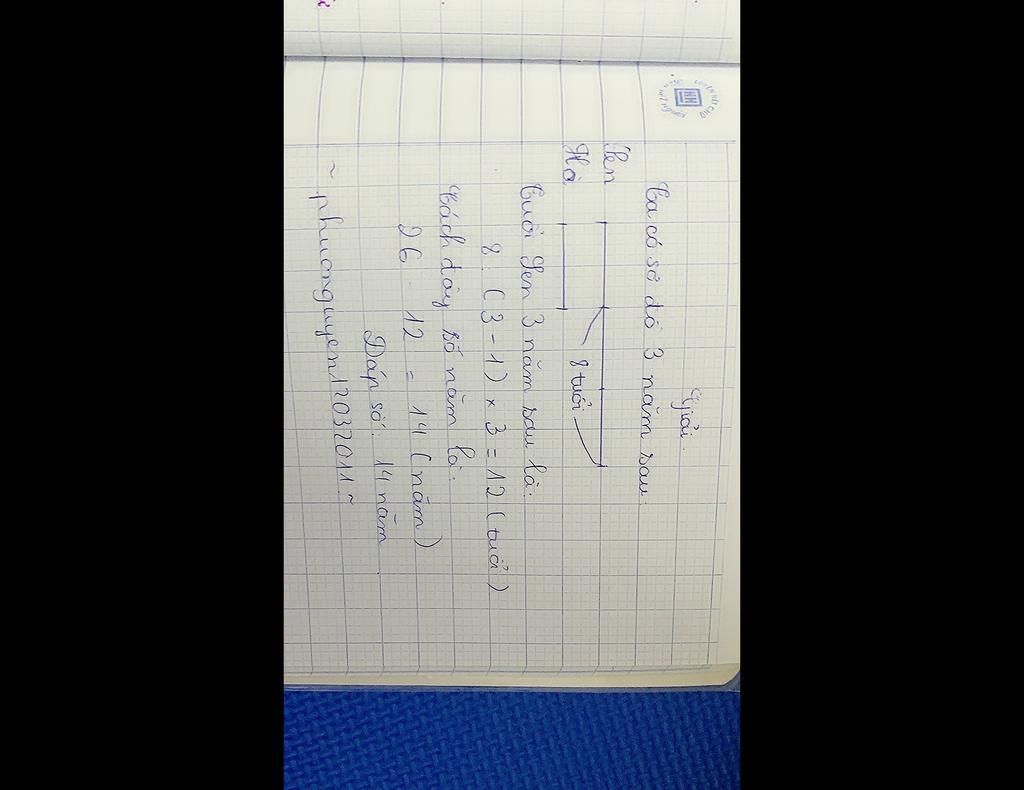 Giải:
Ta có sơ đồ 3 năm sau:
Sen
Hà
8 tuổi
Tuổi Sen 3 năm sau là:
8 : (3 - 1) × 3 = 12 (tuổi)
Cách đây số năm là:
26 - 12 = 14 (năm)
Đáp số: 14 năm
~ phuonguyen12032011 ~